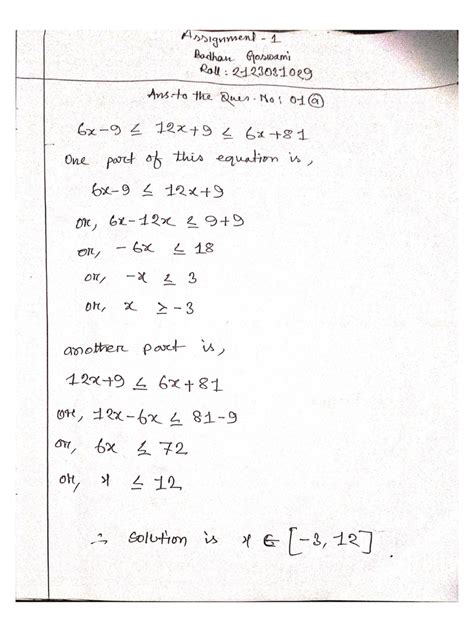 Assignment - 1
Badhan Goswami
Roll : 2123081089
Ans to the Ques. No : 01 (a)
6x-9 ≤ 12x+9 ≤ 6x+81
One part of this equation is,
6x-9 ≤ 12x+9
or, 6x-12x ≤ 9+9
or, -6x ≤ 18
or, -x ≤ 3
or, x ≥ -3
another part is,
12x+9 ≤ 6x+81
or, 12x-6x ≤ 81-9
or, 6x ≤ 72
or, x ≤ 12
∴ Solution is x ∈ [-3, 12].